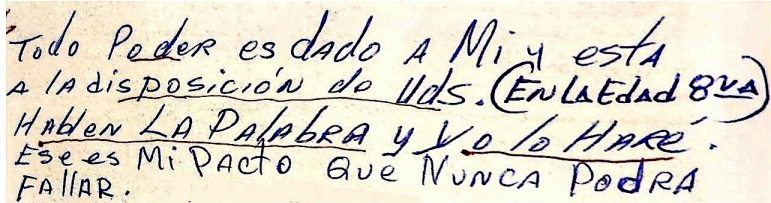 Todo Poder es dado A Mi y estA
A lA disposición de Uds. (EN LA EdAd 8vA)
HAblen LA PAlAbRA y Yo lo HARé.
Ese es Mi PActo Que NUNCA PodRA
FAllAR.